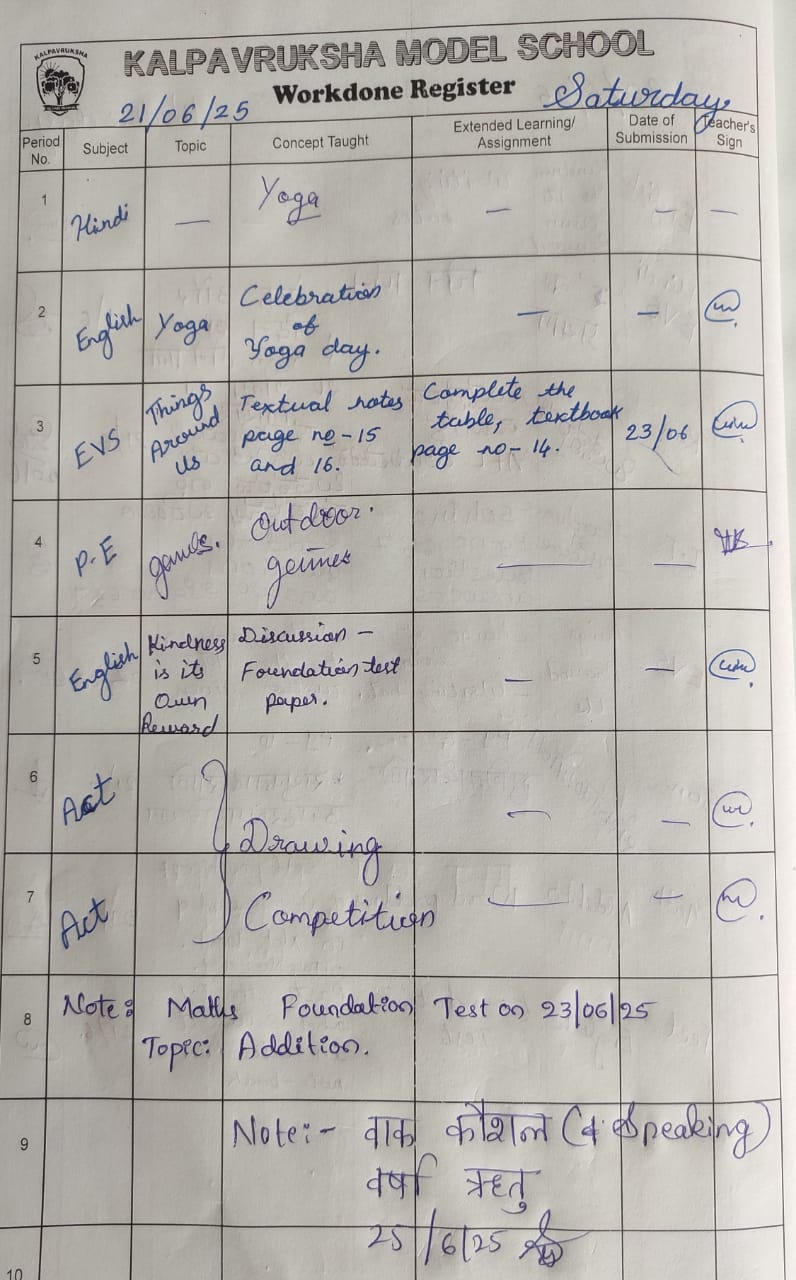 KALPAVRUKSHA
KALPAVRUKSHA MODEL SCHOOL
Workdone Register
21/06/25 Saturday
Period No. Subject Topic Concept Taught Extended Learning/ Assignment Date of Submission Teacher's Sign
1 Hindi — Yoga — — —
2 English Yoga Celebration of Yoga day. — —
3 EVS Things Around Us Textual notes page no-15 and 16. Complete the table, textbook page no-14. 23/06
4 P.E games. Outdoor games — —
5 English Kindness is its Own Reward Discussion - Foundation test paper. — —
6 Act Drawing — —
7 Act Competition — —
8 Note: Maths Foundation Test on 23/06/25
Topic: Addition.
9 Note:- वाक कौशल (Speaking)
वर्षा ऋतु
25/6/25
10